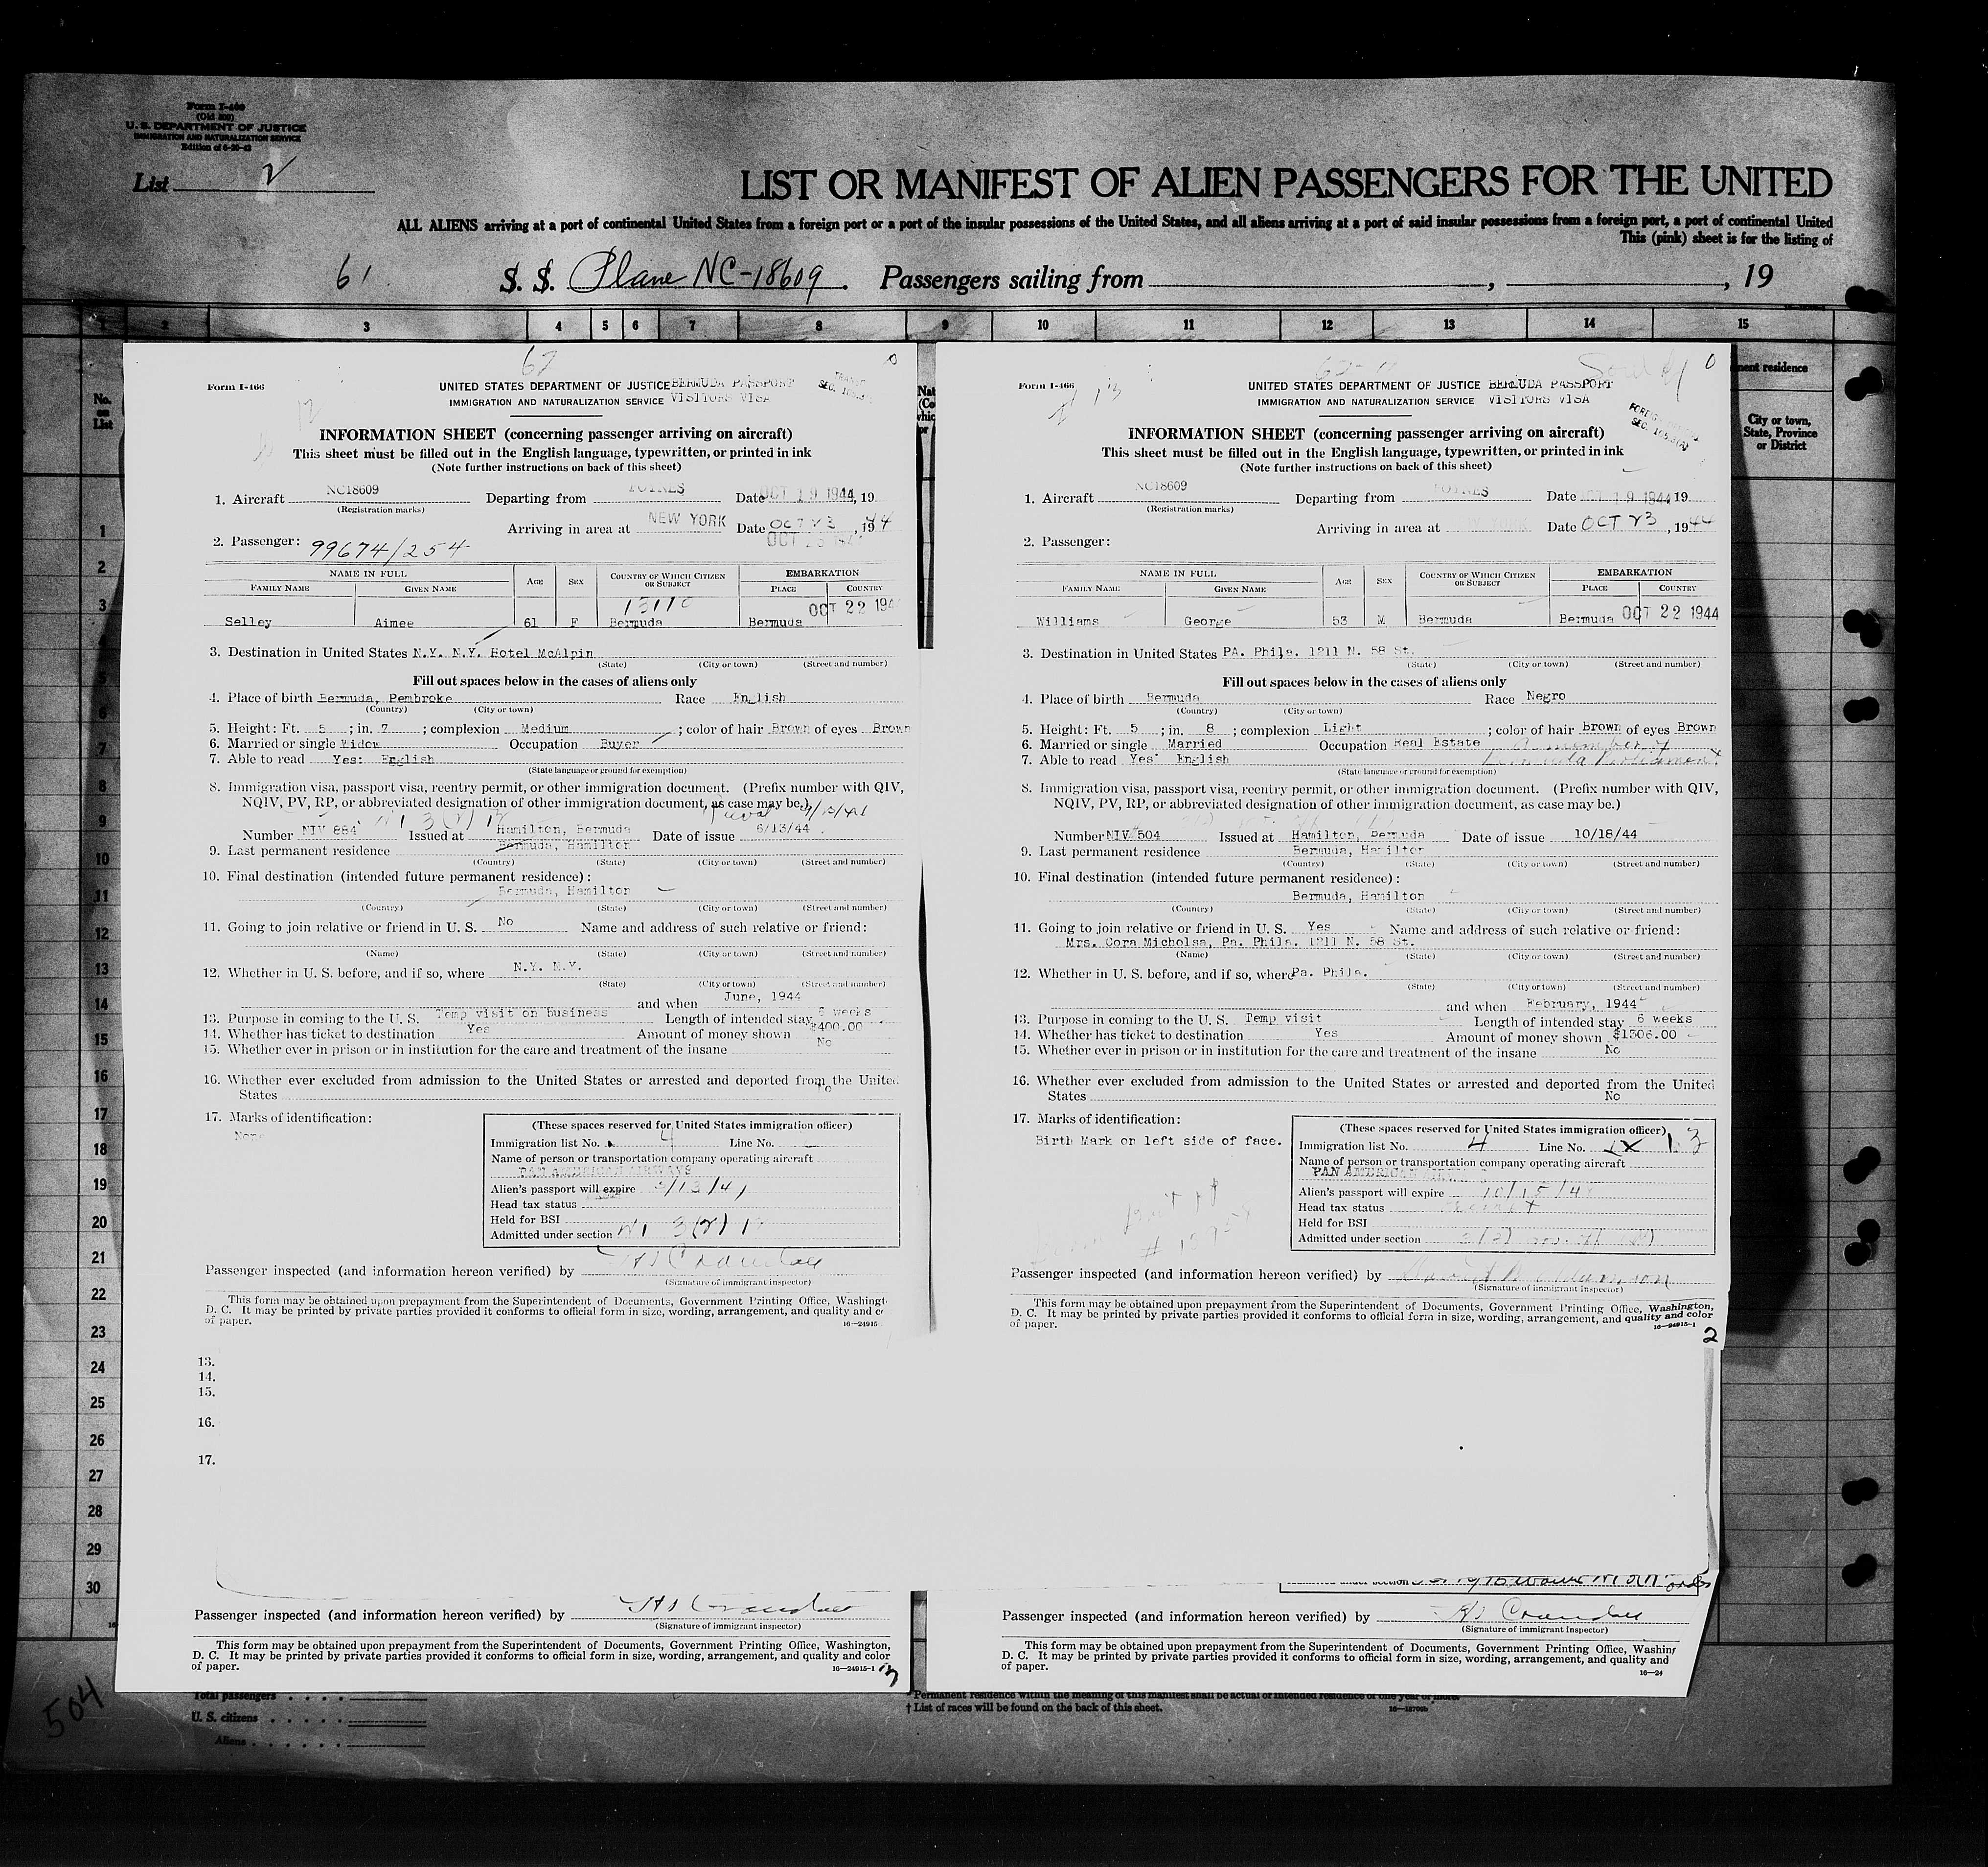 Form I-469
(Old 500)
U. S. DEPARTMENT OF JUSTICE
IMMIGRATION AND NATURALIZATION SERVICE
Edition of 6-20-43
List 2
LIST OR MANIFEST OF ALIEN PASSENGERS FOR THE UNITED
ALL ALIENS arriving at a port of continental United States from a foreign port or a port of the insular possessions of the United States, and all aliens arriving at a port of said insular possessions from a foreign port, a port of continental United
This (pink) sheet is for the listing of
61 S. S. Plane NC-18609. Passengers sailing from , , 19
1 2 3 4 5 6 7 8 9 10 11 12 13 14 15
No. on List
nent residence
City or town, State, Province or District
62
Form I-466
UNITED STATES DEPARTMENT OF JUSTICE BERMUDA PASSPORT
IMMIGRATION AND NATURALIZATION SERVICE VISITORS VISA
INFORMATION SHEET (concerning passenger arriving on aircraft)
This sheet must be filled out in the English language, typewritten, or printed in ink
(Note further instructions on back of this sheet)
1. Aircraft NC18609 Departing from FOYNES Date OCT 19 1944, 19
(Registration marks)
Arriving in area at NEW YORK Date OCT 23, 1944
2. Passenger: 99674/254
NAME IN FULL AGE SEX COUNTRY OF WHICH CITIZEN OR SUBJECT EMBARKATION
FAMILY NAME GIVEN NAME PLACE COUNTRY
OCT 22 194
Selley Aimee 61 F Bermuda Bermuda
3. Destination in United States N.Y. N.Y. Hotel McAlpin
(State) (City or town) (Street and number)
Fill out spaces below in the cases of aliens only
4. Place of birth Bermuda, Pembroke Race English
(Country) (City or town)
5. Height: Ft. 5 ; in. 7 ; complexion Medium ; color of hair Brown of eyes Brown
6. Married or single Widow Occupation Buyer
7. Able to read Yes: English
(State language or ground for exemption)
8. Immigration visa, passport visa, reentry permit, or other immigration document. (Prefix number with QIV,
NQIV, PV, RP, or abbreviated designation of other immigration document, as case may be.)
Number NIV 884 Issued at Hamilton, Bermuda Date of issue 6/13/44
9. Last permanent residence Bermuda, Hamilton
(Country) (State) (City or town) (Street and number)
10. Final destination (intended future permanent residence):
Bermuda, Hamilton
(Country) (State) (City or town) (Street and number)
11. Going to join relative or friend in U. S. No Name and address of such relative or friend:
(Name) (State) (City or town) (Street and number)
12. Whether in U. S. before, and if so, where N.Y. N.Y.
(State) (City or town) (Street and number)
and when June, 1944
13. Purpose in coming to the U. S. Temp visit on business Length of intended stay 6 weeks
14. Whether has ticket to destination Yes Amount of money shown $400.00
15. Whether ever in prison or in institution for the care and treatment of the insane No
16. Whether ever excluded from admission to the United States or arrested and deported from the United
States No
17. Marks of identification:
None
(These spaces reserved for United States immigration officer)
Immigration list No. 4 Line No.
Name of person or transportation company operating aircraft
PAN AMERICAN AIRWAYS
Alien's passport will expire
Head tax status
Held for BSI
Admitted under section
Passenger inspected (and information hereon verified) by
(Signature of immigrant inspector)
This form may be obtained upon prepayment from the Superintendent of Documents, Government Printing Office, Washingt
D. C. It may be printed by private parties provided it conforms to official form in size, wording, arrangement, and quality and c
of paper. 16—24915
13.
14.
15.
16.
17.
Passenger inspected (and information hereon verified) by
(Signature of immigrant inspector)
This form may be obtained upon prepayment from the Superintendent of Documents, Government Printing Office, Washington,
D. C. It may be printed by private parties provided it conforms to official form in size, wording, arrangement, and quality and color
of paper. 16—24915-1
3
Form I-466
13
UNITED STATES DEPARTMENT OF JUSTICE BERMUDA PASSPORT
IMMIGRATION AND NATURALIZATION SERVICE VISITORS VISA
INFORMATION SHEET (concerning passenger arriving on aircraft)
This sheet must be filled out in the English language, typewritten, or printed in ink
(Note further instructions on back of this sheet)
1. Aircraft NC18609 Departing from FOYNES Date OCT 19 1944 19
(Registration marks)
Arriving in area at Date OCT 23, 1944
2. Passenger:
NAME IN FULL AGE SEX COUNTRY OF WHICH CITIZEN OR SUBJECT EMBARKATION
FAMILY NAME GIVEN NAME PLACE COUNTRY
Williams George 53 M Bermuda Bermuda OCT 22 1944
3. Destination in United States PA. Phila. 1211 N. 58 St.
(State) (City or town) (Street and number)
Fill out spaces below in the cases of aliens only
4. Place of birth Bermuda Race Negro
(Country) (City or town)
5. Height: Ft. 5 ; in. 8 ; complexion Light ; color of hair Brown of eyes Brown
6. Married or single Married Occupation Real Estate a member of
7. Able to read Yes English Bermuda Parliament
(State language or ground for exemption)
8. Immigration visa, passport visa, reentry permit, or other immigration document. (Prefix number with QIV,
NQIV, PV, RP, or abbreviated designation of other immigration document, as case may be.)
Number NIV 504 Issued at Hamilton, Bermuda Date of issue 10/18/44
9. Last permanent residence Bermuda, Hamilton
(Country) (State) (City or town) (Street and number)
10. Final destination (intended future permanent residence):
Bermuda, Hamilton
(Country) (State) (City or town) (Street and number)
11. Going to join relative or friend in U. S. Yes Name and address of such relative or friend:
Mrs. Cora Micholsa, Pa. Phila. 1211 N. 58 St.
(Name) (State) (City or town) (Street and number)
12. Whether in U. S. before, and if so, where Pa. Phila.
(State) (City or town) (Street and number)
and when February, 1944
13. Purpose in coming to the U. S. Temp visit Length of intended stay 6 weeks
14. Whether has ticket to destination Yes Amount of money shown $1306.00
15. Whether ever in prison or in institution for the care and treatment of the insane No
16. Whether ever excluded from admission to the United States or arrested and deported from the United
States No
17. Marks of identification:
Birth Mark on left side of face.
(These spaces reserved for United States immigration officer)
Immigration list No. 4 Line No. 13
Name of person or transportation company operating aircraft
PAN AMERICAN
Alien's passport will expire
Head tax status
Held for BSI
Admitted under section
Passenger inspected (and information hereon verified) by
(Signature of immigrant inspector)
This form may be obtained upon prepayment from the Superintendent of Documents, Government Printing Office, Washington,
D. C. It may be printed by private parties provided it conforms to official form in size, wording, arrangement, and quality and color
of paper. 16—24915-1
2
Passenger inspected (and information hereon verified) by
(Signature of immigrant inspector)
This form may be obtained upon prepayment from the Superintendent of Documents, Government Printing Office, Washin
D. C. It may be printed by private parties provided it conforms to official form in size, wording, arrangement, and quality and
of paper. 16—24
1
2
3
5
6
7
8
9
10
11
12
13
14
15
16
17
18
19
20
21
22
23
24
25
26
27
28
29
30
504
Total passengers
U. S. citizens
Aliens
* Permanent residence within the meaning of this manifest shall be actual or intended residence of one year or more.
† List of races will be found on the back of this sheet.